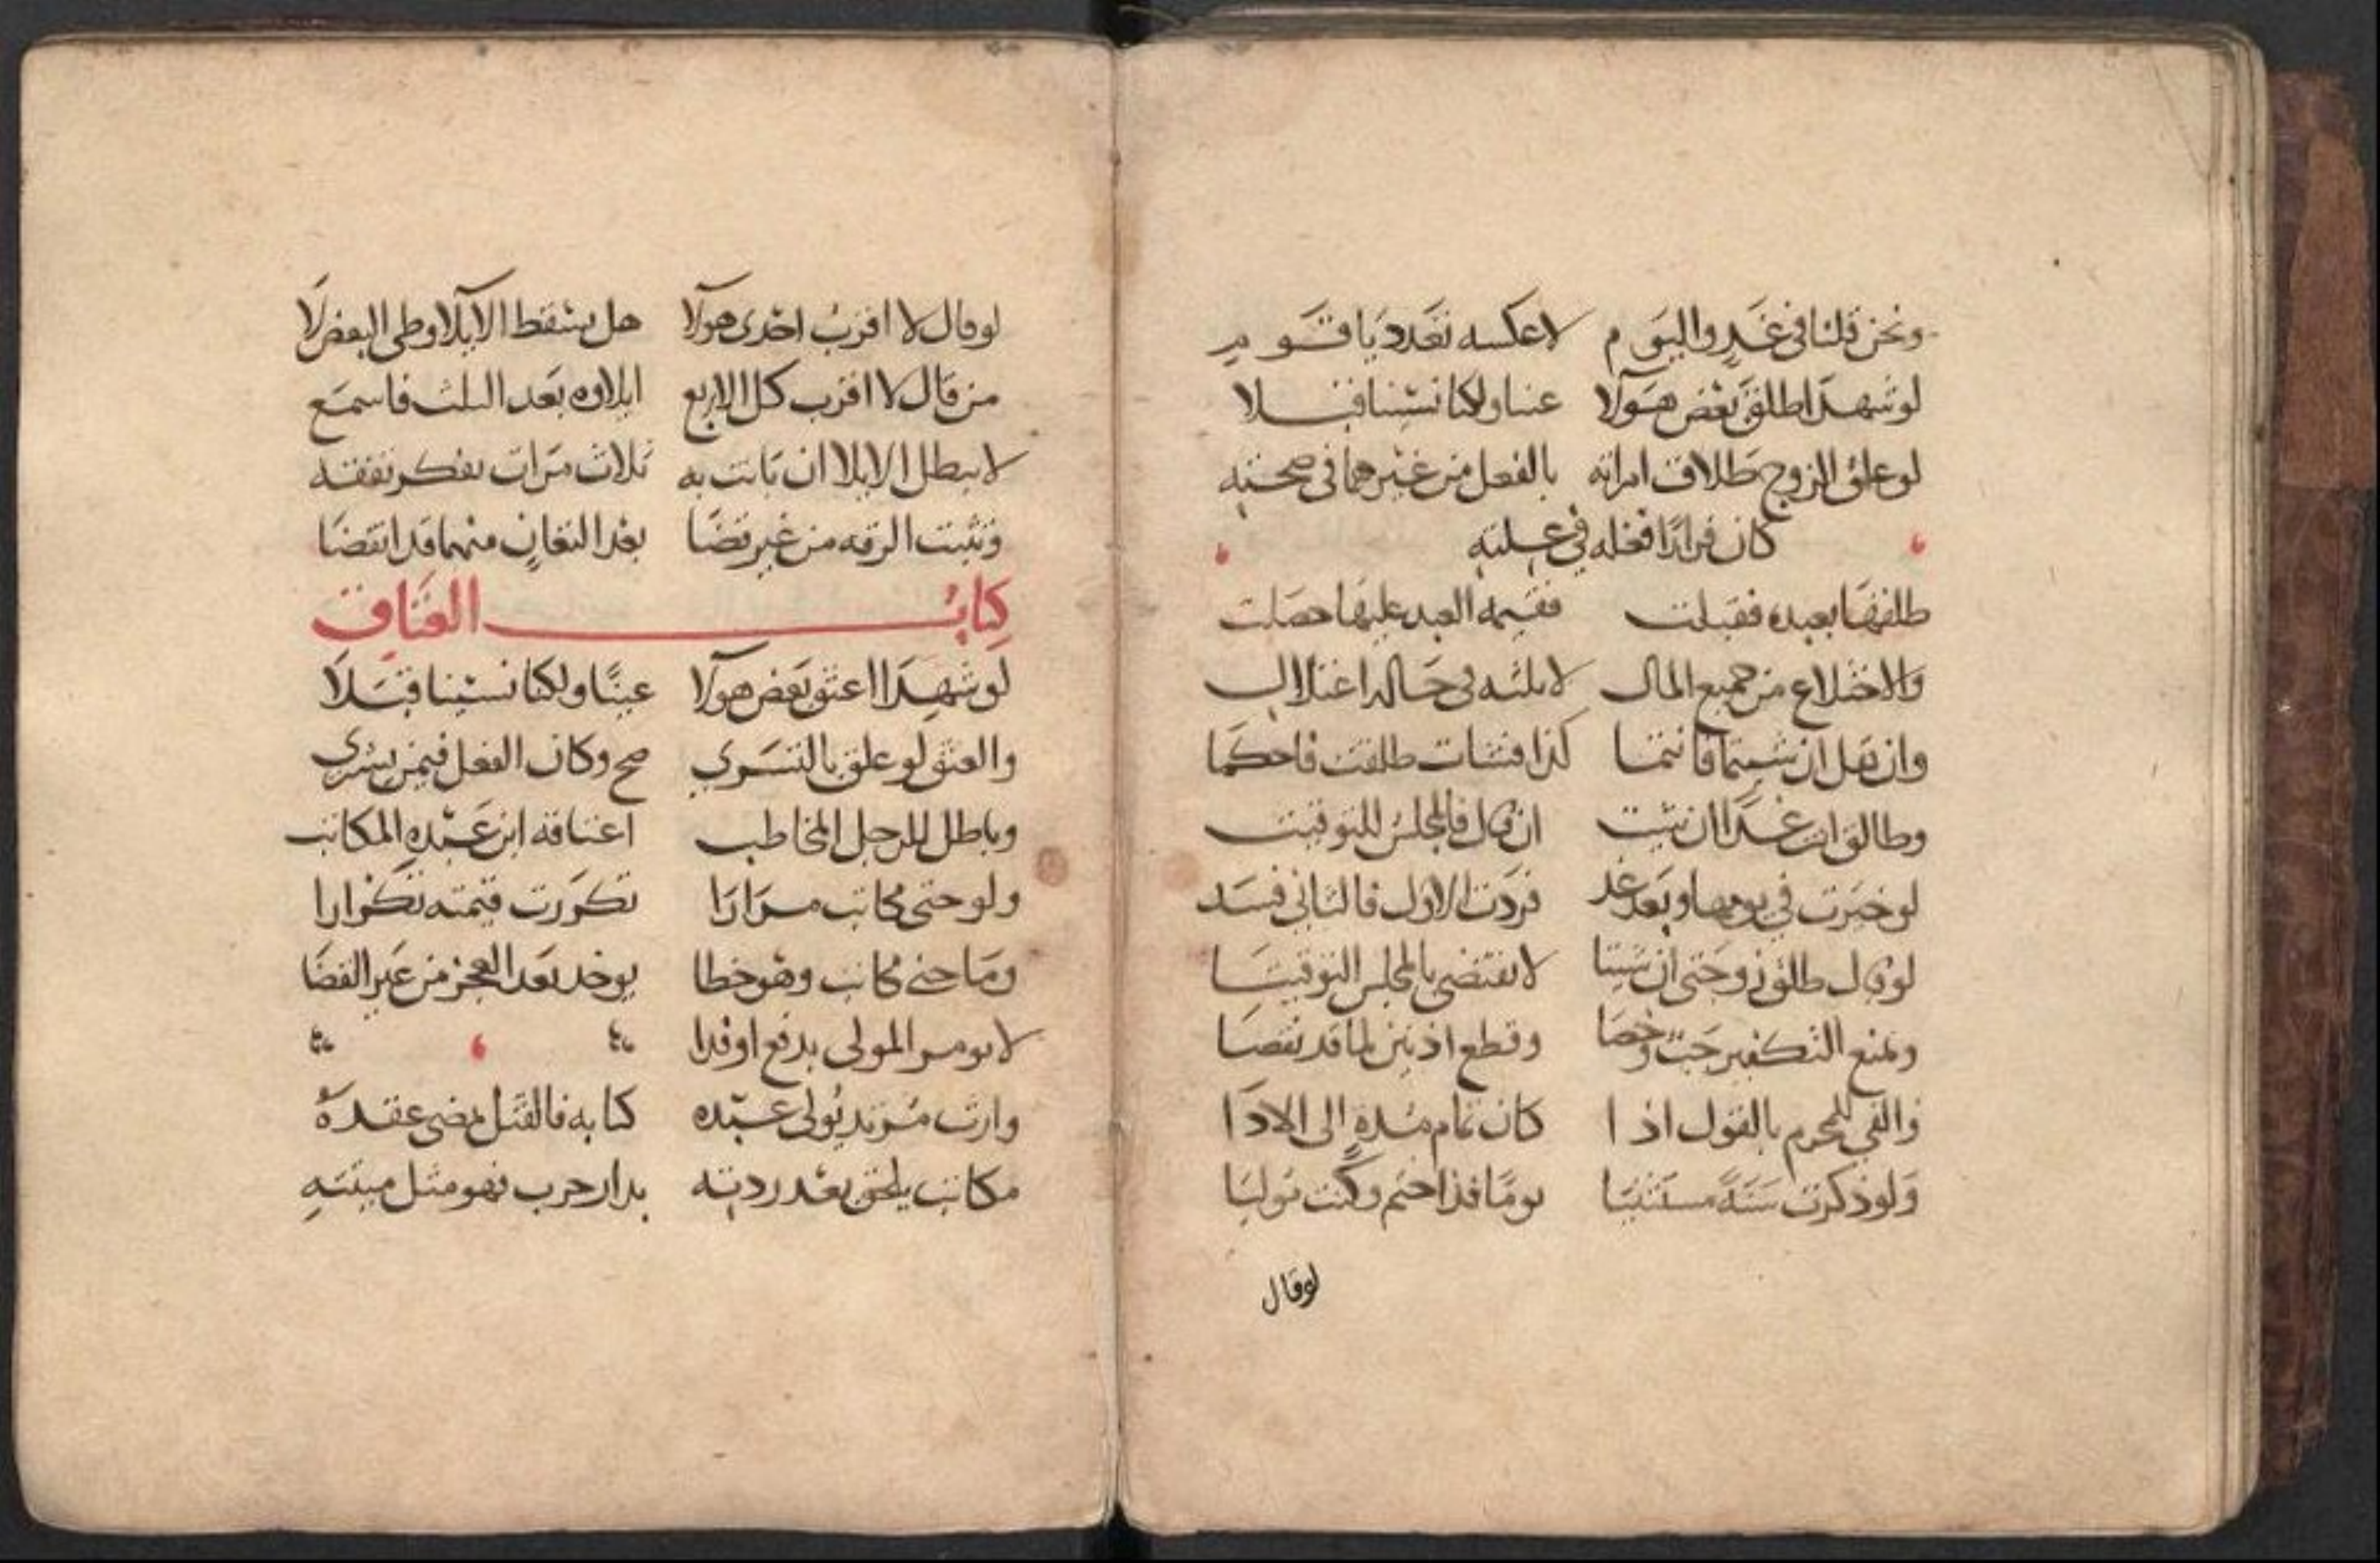 ونحن قلنا في غد واليوم لا عكسه تعدد يا قوم
لو شهدا طلق بعض هولا عينا ولكنا نسينا قبلا
لو علق الزوج طلاق امراته بالفعل من غيرهما في صحته
كان فرارا فعله في علته
طلقها بعبده فقبلت فقيمه العبد عليها حصلت
والاختلاع من جميع المال لا ثلثه في حاله اعتلال
وان يقل ان شيتما فانتما كذا فشات طلقت فاحكما
وطالق انت غدا ان شيت ان قال فالمجلس للتوقيت
لو خيرت في يومها وبعد غد فردت الاول فالثاني فسد
لو قال طلق زوجتي ان شيتا لا تقتضي بالمجلس التوقيتا
ويمنع التكفير جب وخصا وقطع اذنين لما قد نقصا
والفي للمحرم بالقول اذا كان تمام مده الى الادا
ولو ذكرت سنة مستثنيا يوما فذا حتم وكنت موليا
لو قال
لو قال لا اقرب احدى هولا هل يسقط الايلا وطي البعض لا
من قال لا اقرب كل الاربع ايلاوه بعد الثلث فاسمع
لا يبطل الايلا ان بانت به ثلاث مرات تفكر تفقه
وتثبت الرقه من غير قضا بعد التعان منهما قد انقضا
كتاب العتاق
لو شهدا اعتق بعض هولا عينا ولكنا نسينا قبلا
والعتق لو علق بالتسري صح وكان الفعل فيمن يشري
وباطل للرجل المخاطب اعتاقه ابن عبده المكاتب
ولو جنى مكاتب مرارا تكررت قيمته تكرارا
وما جنى مكاتب وهو خطا يوخذ بعد العجز من غير القضا
لا يومر المولى بدفع او فدا
وارث مرتد يولى عبده كتابه فالقتل يمضي عقده
مكاتب يلحق بعد ردته بدار حرب فهو مثل ميته